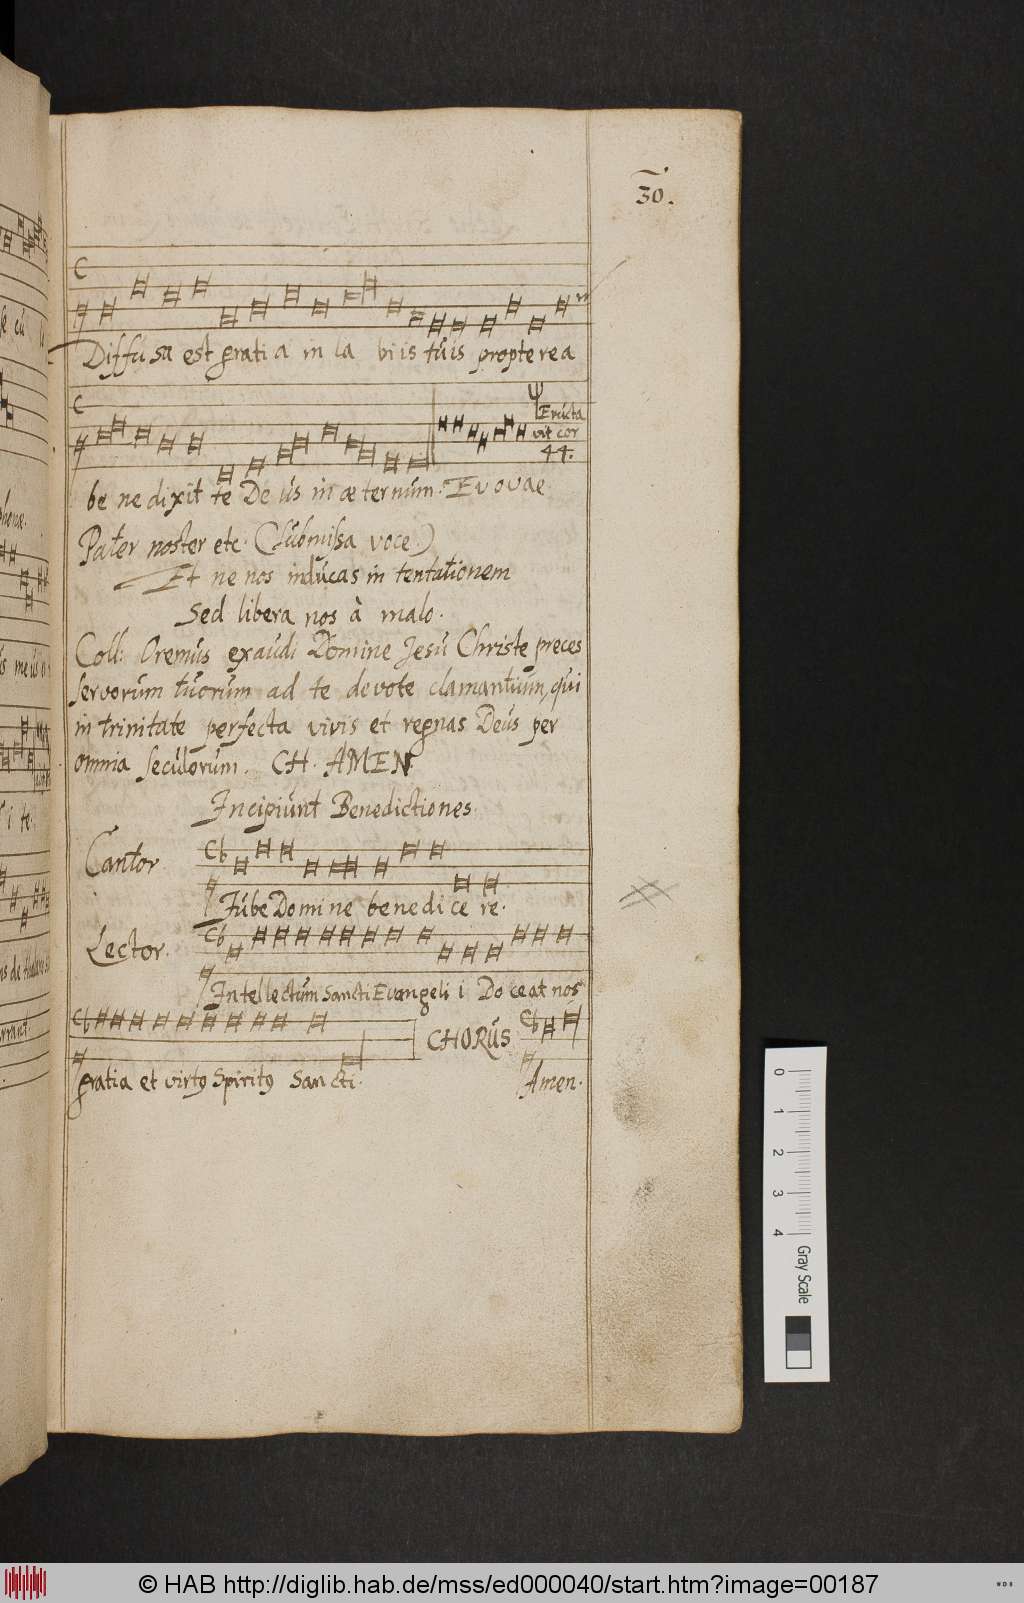 30.
Diffusa est gratia in labiis tuis propterea
Eructa
vit cor
44.
be ne dixit te Deus in æternum. Evovae
Pater noster etc. (submissa voce.)
Et ne nos inducas in tentationem
Sed libera nos à malo.
Coll: Oremus exaudi Domine Jesu Christe preces
servorum tuorum ad te devote clamantium, qui
in trinitate perfecta vivis et regnas Deus per
omnia seculorum. CH. AMEN
Incipiunt Benedictiones.
Cantor
Jube Domine benedicere.
Lector.
Intellectum Sancti Evangelii Doceat nos
CHORUS
gratia et virtꝯ Spiritꝯ Sancti. Amen.
© HAB http://diglib.hab.de/mss/ed000040/start.htm?image=00187
0 1 2 3 4 Gray Scale